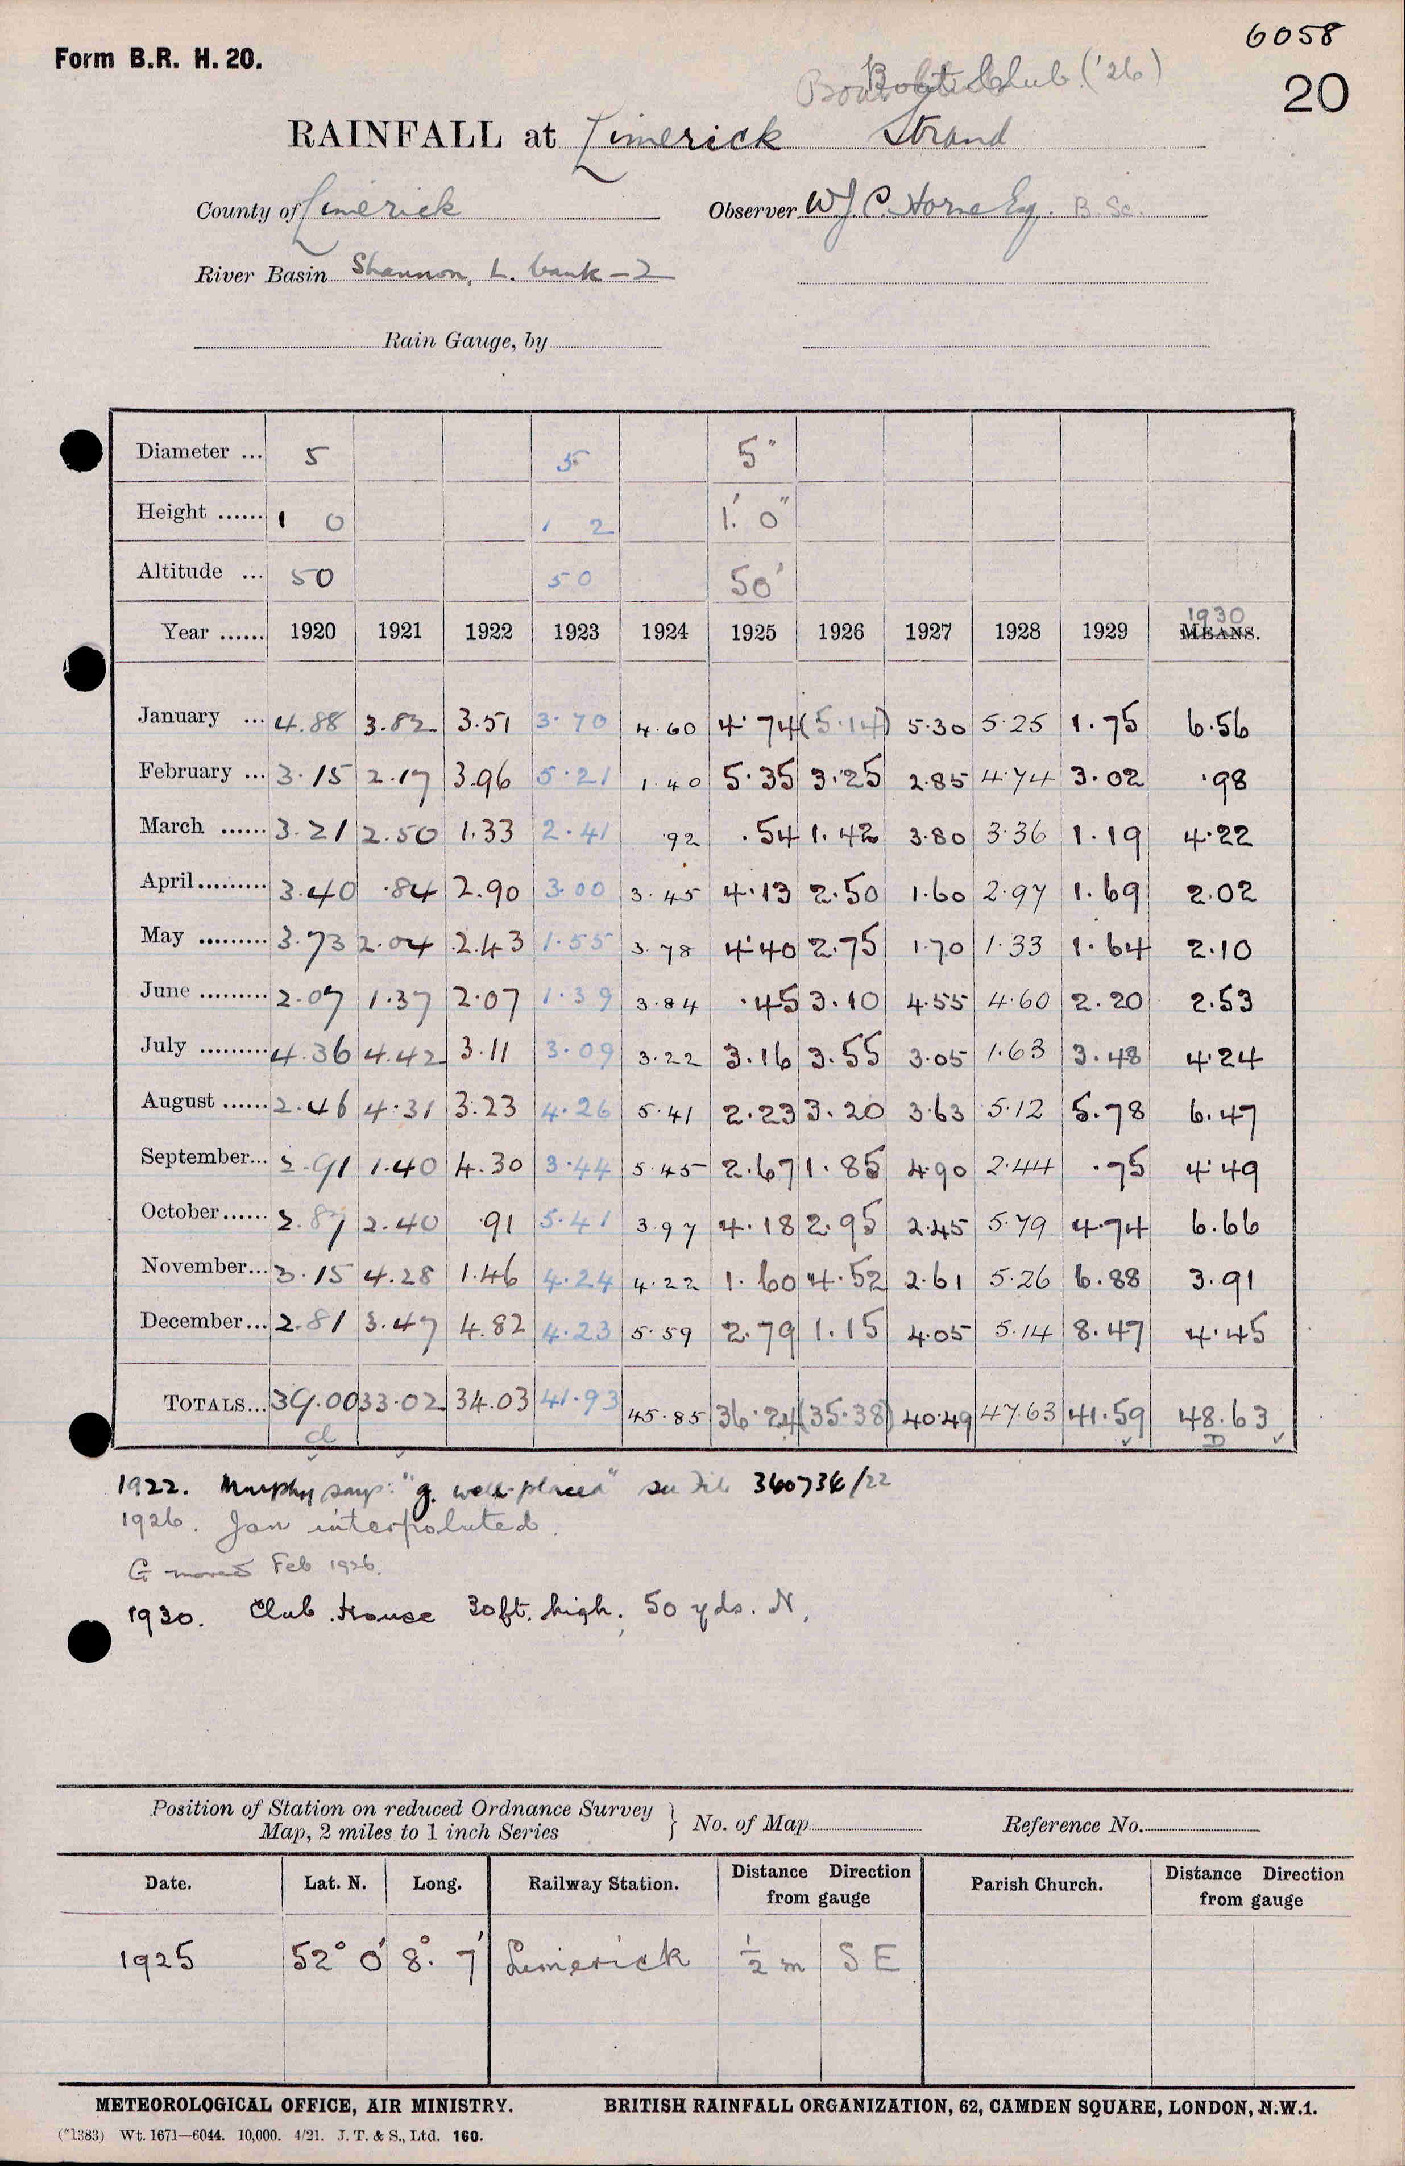 6058
Form B.R. H. 20.
Club ('26)
20
RAINFALL at Limerick Strand
County of Limerick Observer W J. C. Horne Esq. B. Sc.
River Basin Shannon, L. bank - 2
Rain Gauge, by
Diameter ... 5 5 5"
Height ...... 1 0 1 2 1' 0"
Altitude ... 50 50 50'
1930
Year ...... 1920 1921 1922 1923 1924 1925 1926 1927 1928 1929 MEANS.
January ... 4.88 3.82 3.51 3.70 4.60 4.74 (5.14) 5.30 5.25 1.75 6.56
February ... 3.15 2.17 3.96 5.21 1.40 5.35 3.25 2.85 4.74 3.02 .98
March ...... 3.21 2.50 1.33 2.41 .92 .54 1.42 3.80 3.36 1.19 4.22
April......... 3.40 .84 2.90 3.00 3.45 4.13 2.50 1.60 2.97 1.69 2.02
May ......... 3.73 2.04 2.43 1.55 3.78 4.40 2.75 1.70 1.33 1.64 2.10
June ......... 2.07 1.37 2.07 1.39 3.84 .45 3.10 4.55 4.60 2.20 2.53
July ......... 4.36 4.42 3.11 3.09 3.22 3.16 3.55 3.05 1.63 3.48 4.24
August ...... 2.46 4.31 3.23 4.26 5.41 2.23 3.20 3.63 5.12 5.78 6.47
September... 2.91 1.40 4.30 3.44 5.45 2.67 1.85 4.90 2.44 .75 4.49
October...... 2.87 2.40 .91 5.41 3.97 4.18 2.95 2.45 5.79 4.74 6.66
November... 3.15 4.28 1.46 4.24 4.22 1.60 4.52 2.61 5.26 6.88 3.91
December... 2.81 3.47 4.82 4.23 5.59 2.79 1.15 4.05 5.14 8.47 4.45
TOTALS... 39.00 33.02 34.03 41.93 45.85 36.24 (35.38) 40.49 47.63 41.59 48.63
D
1922. Murphy says "g. well-placed" see File 360736/22
1926. Jan interpolated.
G moved Feb 1926.
1930. Club House 30ft. high, 50 yds. N.
Position of Station on reduced Ordnance Survey Map, 2 miles to 1 inch Series } No. of Map Reference No.
Date. Lat. N. Long. Railway Station. Distance Direction from gauge Parish Church. Distance Direction from gauge
1925 52° 0' 8° 7' Limerick ½ m SE
METEOROLOGICAL OFFICE, AIR MINISTRY. BRITISH RAINFALL ORGANIZATION, 62, CAMDEN SQUARE, LONDON, N.W.1.
(*1383) Wt. 1671—6044. 10,000. 4/21. J. T. & S., Ltd. 160.